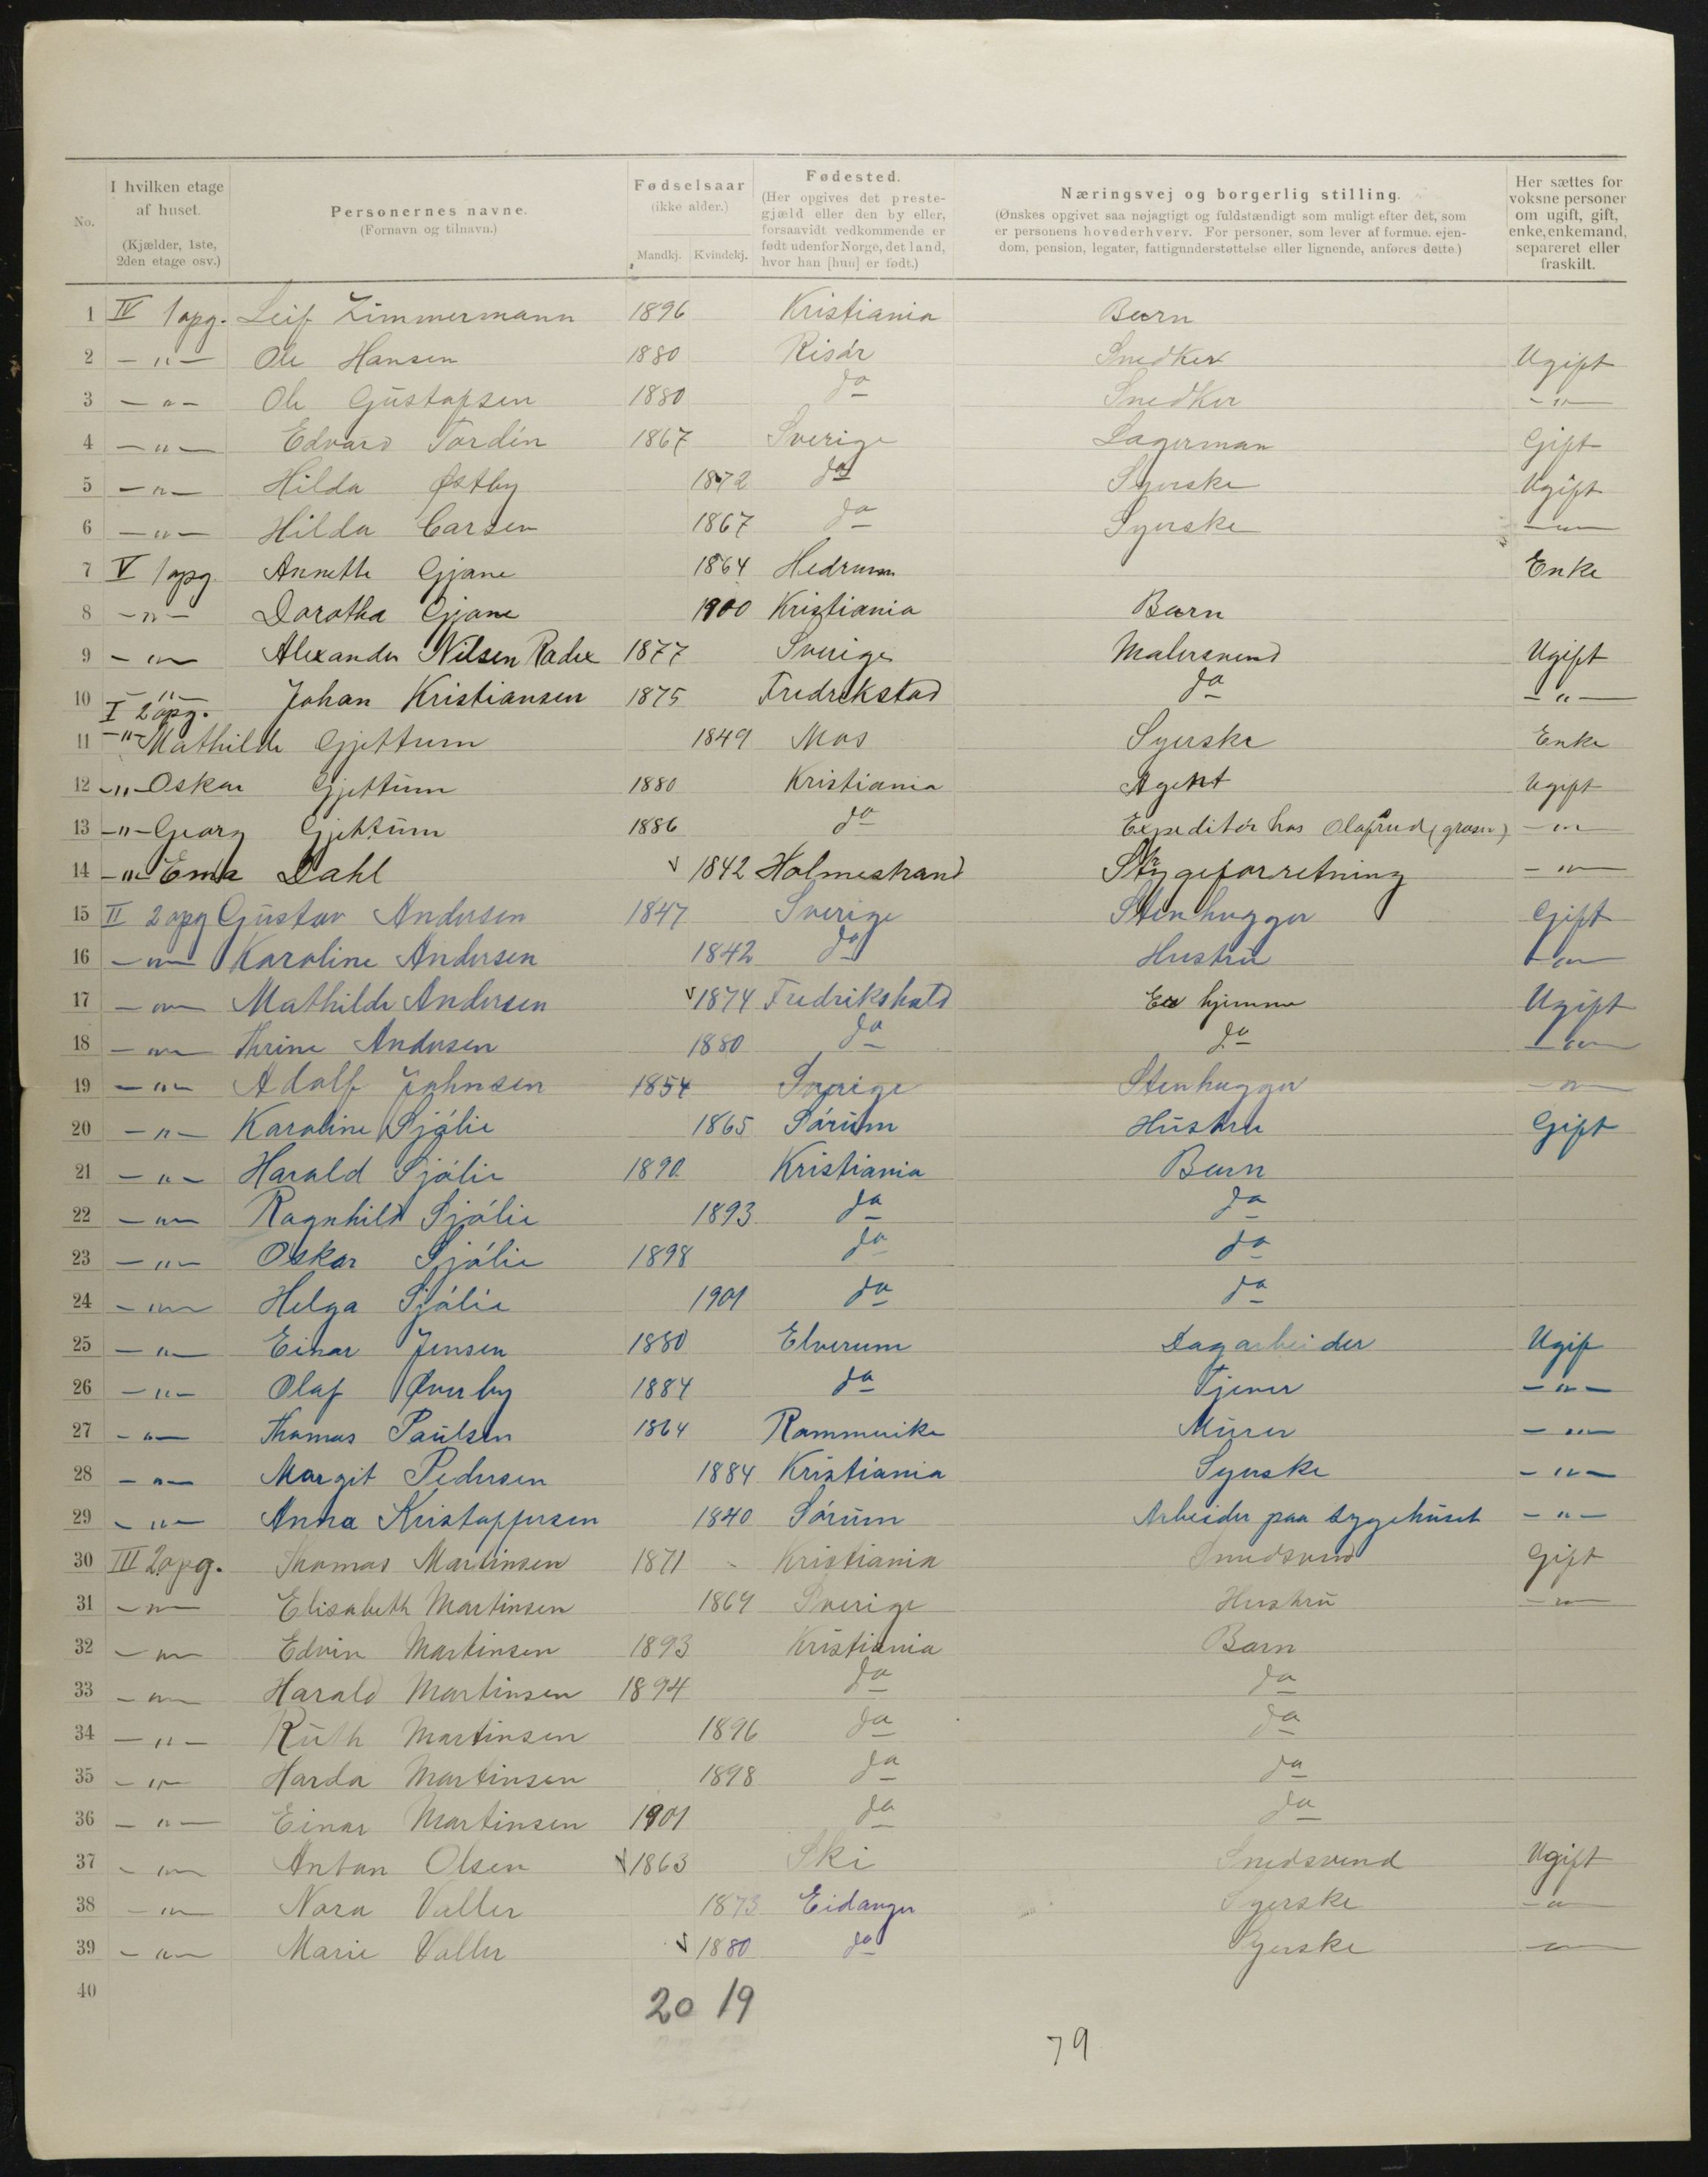 No.
I hvilken etage af huset. (Kjælder, 1ste, 2den etage osv.)
Personernes navne. (Fornavn og tilnavn.)
Fødselsaar (ikke alder.) Mandkj. Kvindekj.
Fødested. (Her opgives det prestegjæld eller den by eller, forsaavidt vedkommende er født udenfor Norge, det land, hvor han [hun] er født.)
Næringsvej og borgerlig stilling. (Ønskes opgivet saa nøjagtigt og fuldstændigt som muligt efter det, som er personens hovederhverv. For personer, som lever af formue. ejendom, pension, legater, fattigunderstøttelse eller lignende, anføres dette.)
Her sættes for voksne personer om ugift, gift, enke, enkemand, separeret eller fraskilt.
1 IV 1 opg. Leif Zimmermann 1896 Kristiania Barn
2 – " – Ole Hansen 1880 Risór Snedker Ugift
3 – " – Ole Gustafsen 1880 do Snedker – " –
4 – " – Edvard Tordén 1867 Sverige Lagerman Gift
5 – " – Hilda Østby 1872 do Syerske Ugift
6 – " – Hilda Carsen 1867 do Syerske – " –
7 V 1 opg. Annette Gjone 1864 Hedrum Enke
8 – " – Dorothea Gjone 1900 Kristiania Barn
9 – " – Alexander Nilsen 1877 Sverige Malersvend Ugift
10 – " – Johan Kristiansen 1875 Fredrikstad do – " –
I 2 opg.
11 – " – Mathilde Gjettum 1849 Mos Syerske Enke
12 – " – Oskar Gjettum 1880 Kristiania Agent Ugift
13 – " – Georg Gjettum 1886 do Expeditór hos Olafsrud – " –
14 – " – Dahl 1842 Holmestrand Strygeforretning – " –
15 II 2 opg Gustav Andersen 1847 Sverige Stenhugger Gift
16 – " – Karoline Andersen 1842 do Hustru – " –
17 – " – Mathilde Andersen 1874 Fredrikshald Er hjemme Ugift
18 – " – Thrine Andersen 1880 do do – " –
19 – " – Adolf Johnsen 1854 Sverige Stenhugger – " –
20 – " – Karoline Sjólie 1865 Sórum Hustru Gift
21 – " – Harald Sjólie 1890 Kristiania Barn
22 – " – Ragnhild Sjólie 1893 do do
23 – " – Oskar Sjólie 1898 do do
24 – " – Helga Sjólie 1901 do do
25 – " – Einar Jensen 1880 Elverum Dagarbeider Ugif
26 – " – Olaf Øverby 1884 do Tjener – " –
27 – " – Thomas Paulsen 1864 Rommerike Murer – " –
28 – " – Margit Pedersen 1884 Kristiania Syerske – " –
29 – " – Anna Kristoffersen 1840 Sórum Arbeider paa sygehuset – " –
30 III 2 opg. Thomas Martinsen 1871 Kristiania Smedsvend Gift
31 – " – Elisabeth Martinsen 1864 Sverige Hustru – " –
32 – " – Edvin Martinsen 1893 Kristiania Barn
33 – " – Harald Martinsen 1894 do do
34 – " – Ruth Martinsen 1896 do do
35 – " – Harda Martinsen 1898 do do
36 – " – Einar Martinsen 1901 do do
37 – " – Anton Olsen 1863 Ski Smedsvend Ugift
38 – " – Nora Valler 1873 Eidanger Syerske – " –
39 – " – Marie Valler 1880 do Syerske – " –
40
20 19
79